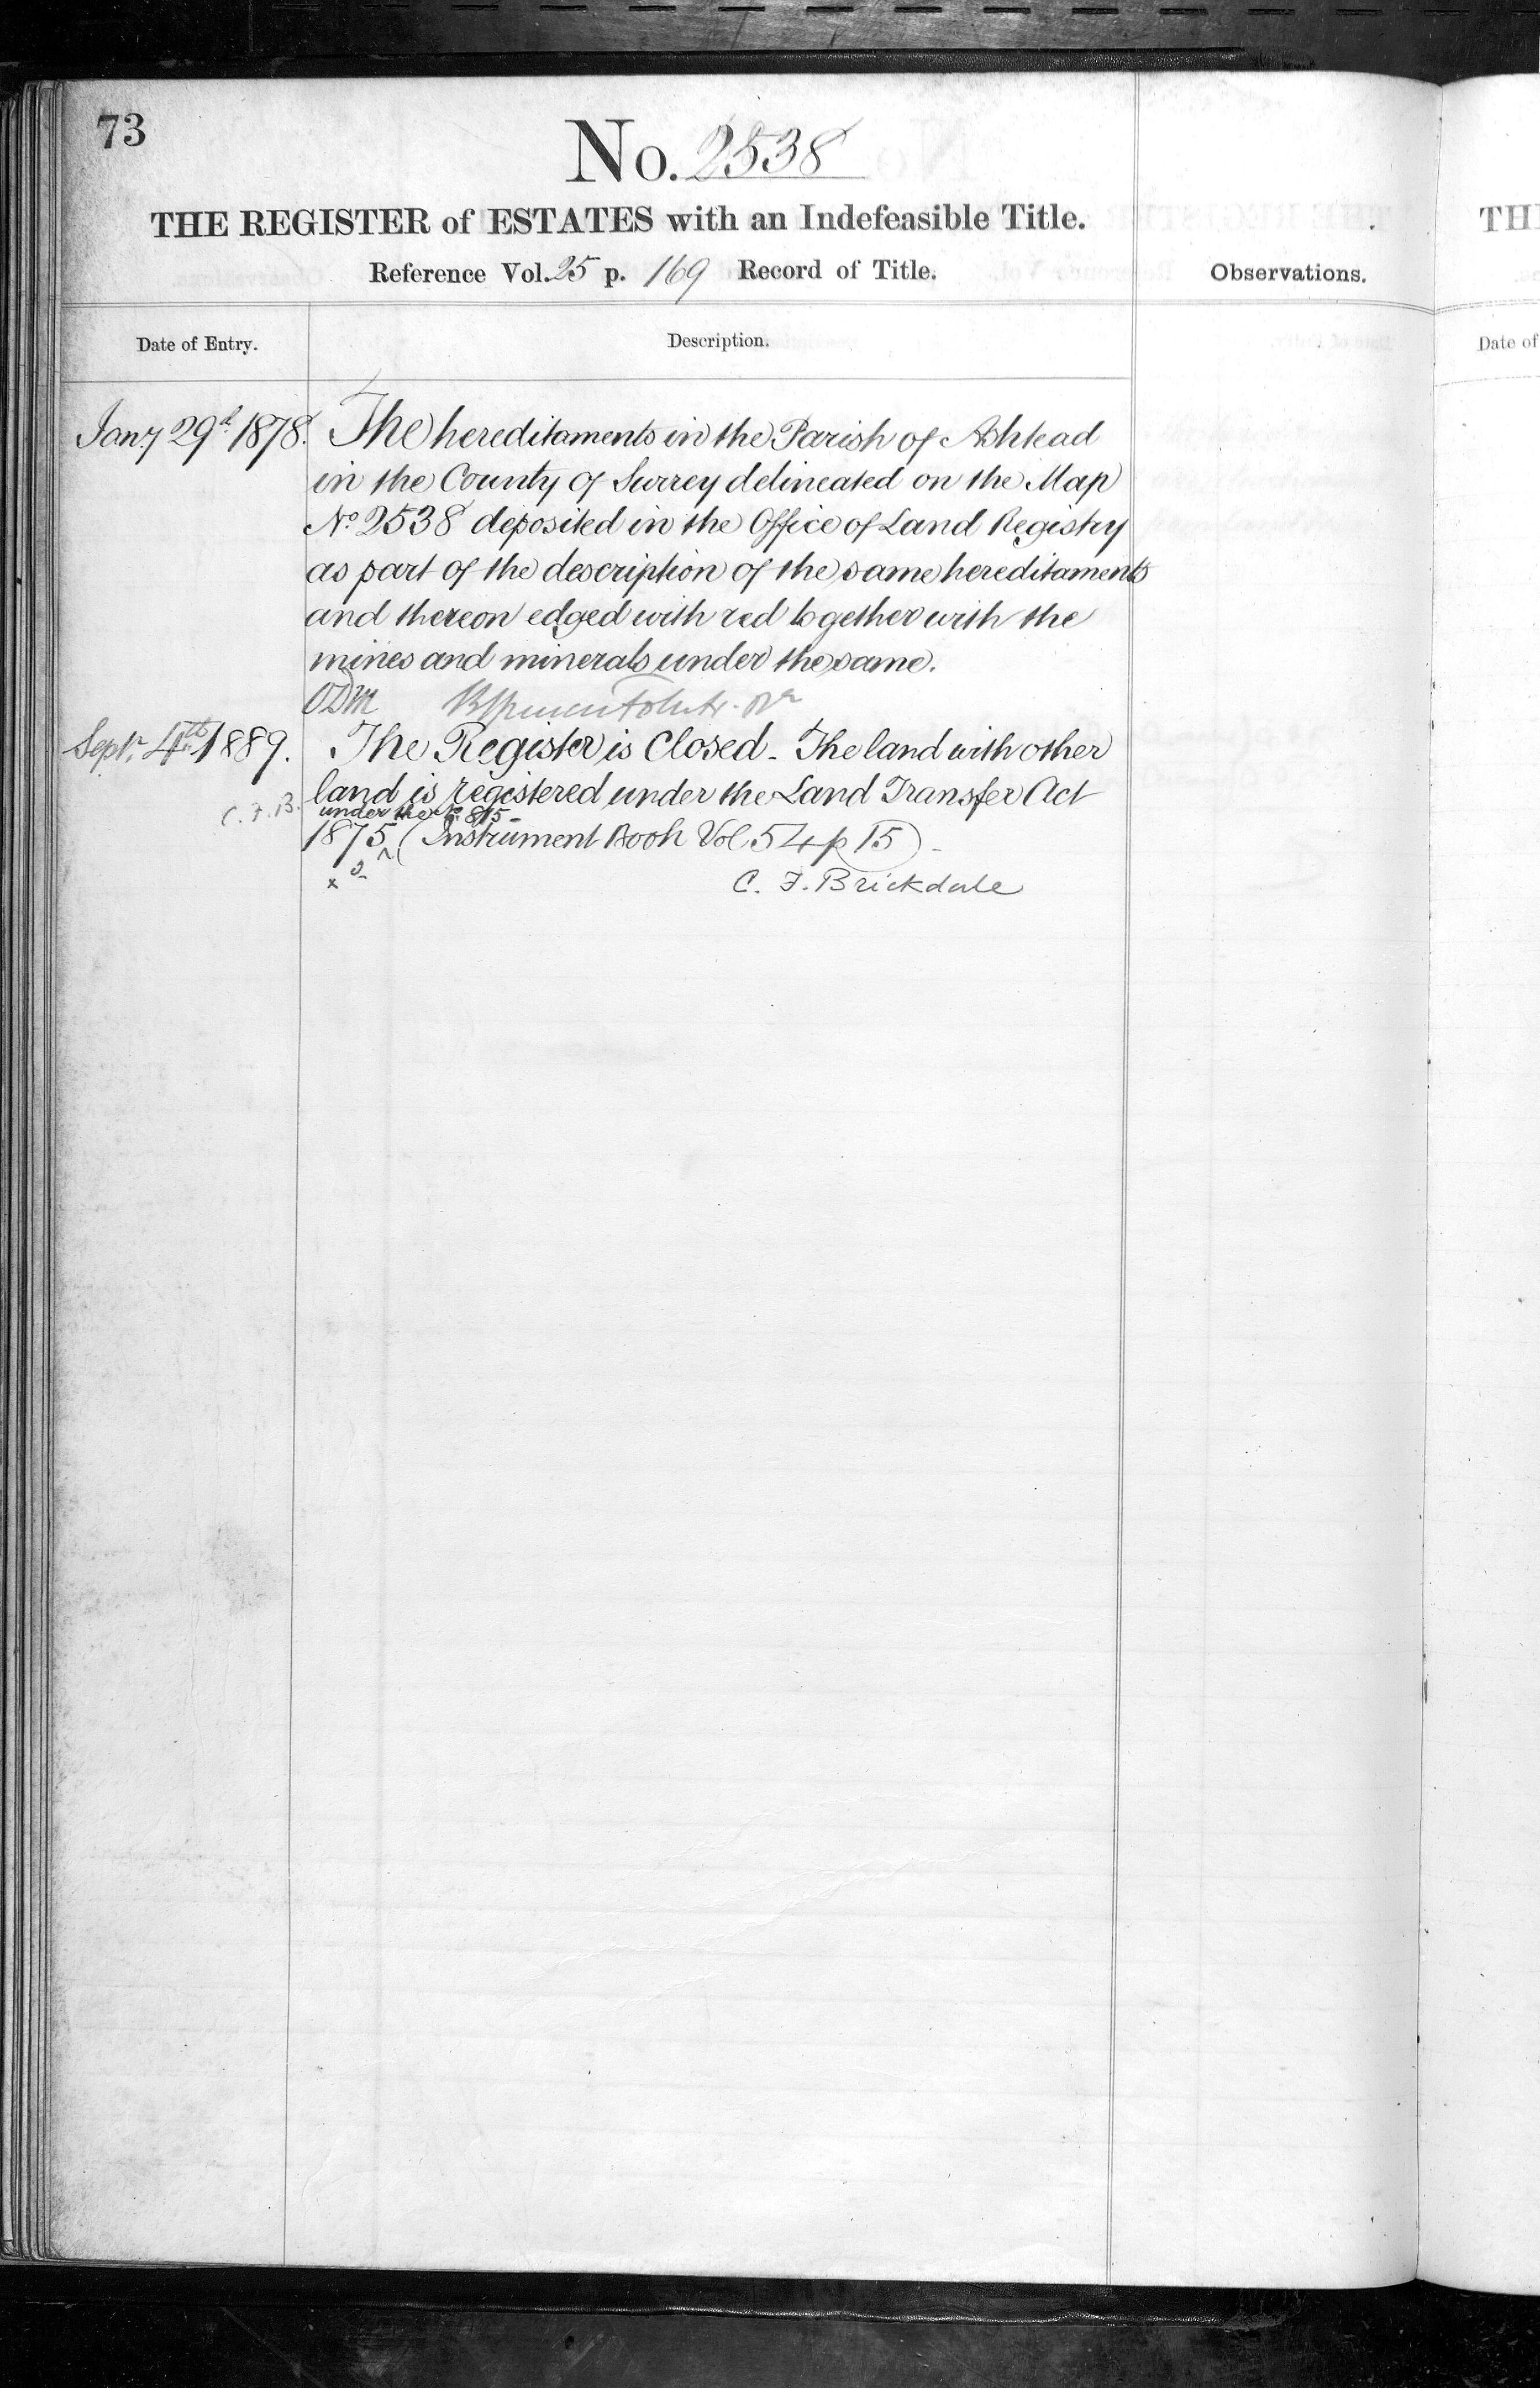 73
No. 2538
THE REGISTER of ESTATES with an Indefeasible Title.
Reference Vol. 25 p. 169 Record of Title.
Observations.
Date of Entry.
Description.
Jany 29th 1878. The hereditaments in the Parish of Ashtead
in the County of Surrey delineated on the Map
No 2538 deposited in the Office of Land Registry
as part of the description of the same hereditaments
and thereon edged with red together with the
mines and minerals under the same.
ODM
Septr. 4th 1889. The Register is Closed - The land with other
land is registered under the Land Transfer Act
C. F. B.
under the No. 815 -
1875 (Instrument Book Vol 54 p 15) -
C. F. Brickdale
TH
Date of